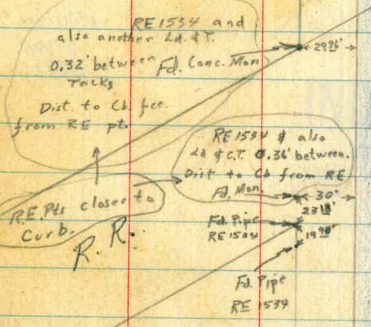 RE 1534 and
also another Ld. & T.
0.32' between
Tacks
Fd. Conc. Mon.
Dist. to Cb. fce.
from RE pt.
RE 1534 & also
Ld & C.T. 0.36' between.
Dist to Cb from RE
Fd. Mon.
30'
R.E. Pts closer to
Curb.
R. R.
Fd. Pipe
RE 1534
Fd. Pipe
RE 1534